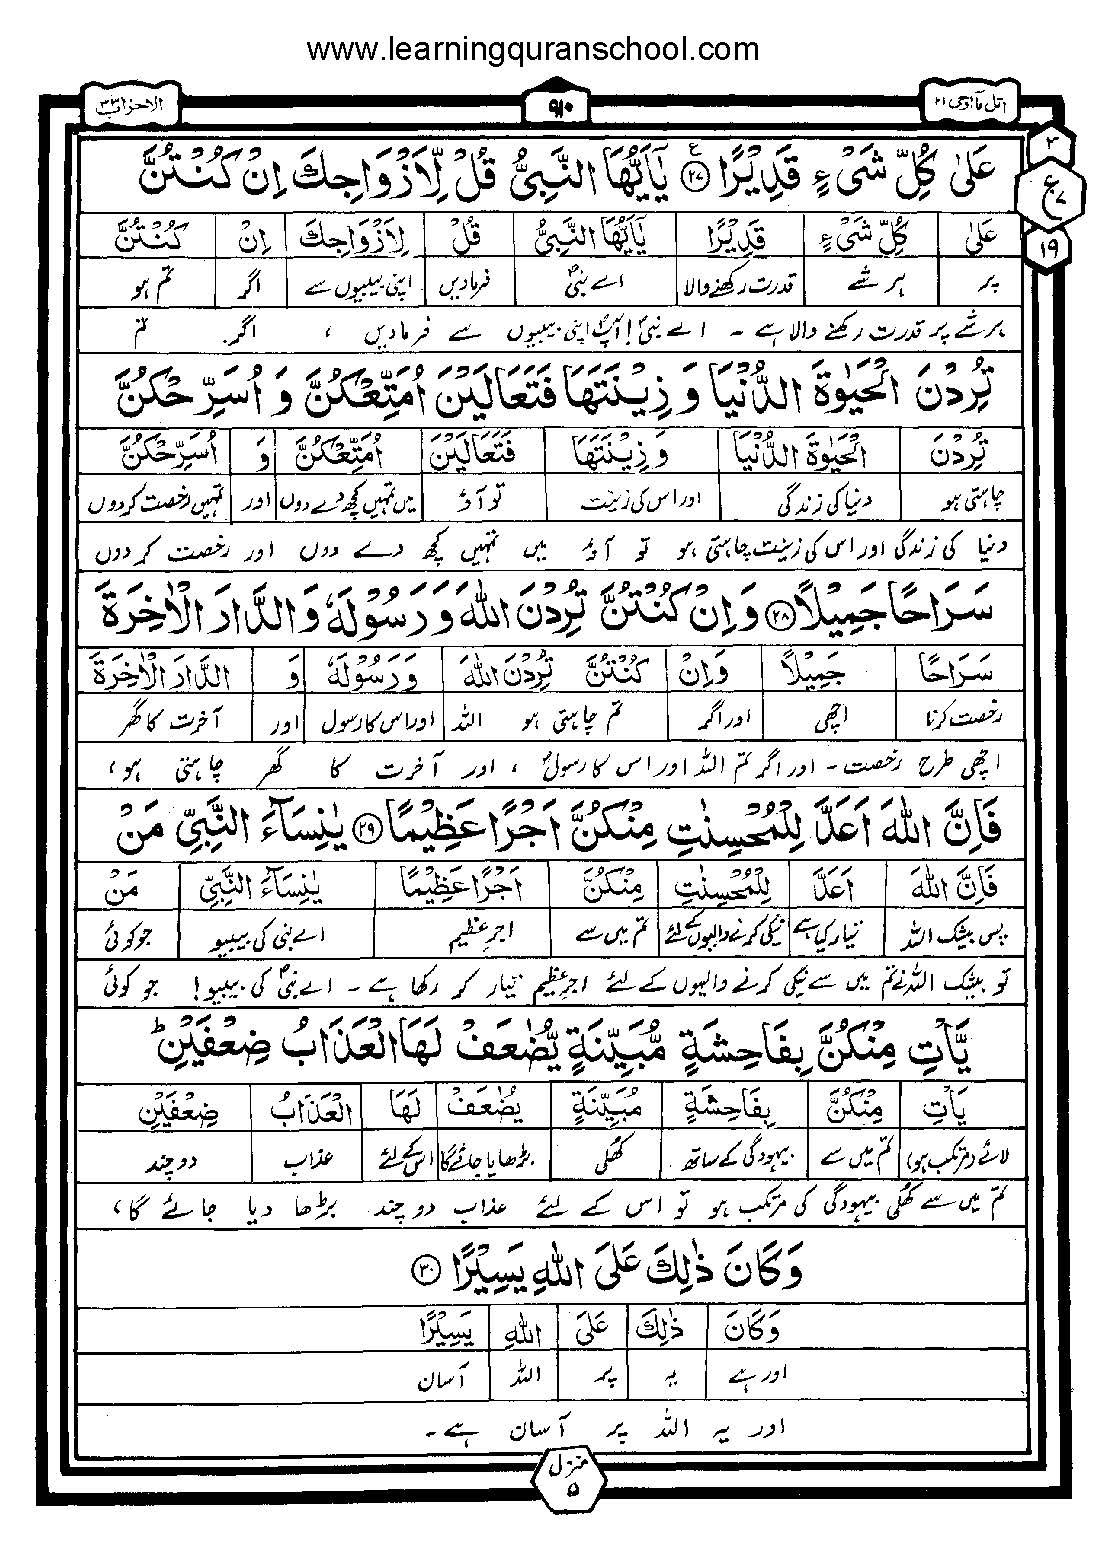 www.learningquranschool.com
اتل مآ اوحی ۲۱
۹۱۰
الاحزاب ۳۳
عَلٰی کُلِّ شَیْءٍ قَدِیْرًا ﴿۲۷﴾ یٰۤاَیُّهَا النَّبِیُّ قُلْ لِّاَزْوَاجِكَ اِنْ کُنْتُنَّ
۳
ع
۷
۱۹
عَلٰی کُلِّ شَیْءٍ قَدِیْرًا یٰۤاَیُّهَا النَّبِیُّ قُلْ لِاَزْوَاجِكَ اِنْ کُنْتُنَّ
پر ہر شے قدرت رکھنے والا اے نبیؐ فرمادیں اپنی بیبیوں سے اگر تم ہو
ہر شے پر قدرت رکھنے والا ہے ۔ اے نبیؐ! آپؐ اپنی بیبیوں سے فرمادیں ، اگر تم
تُرِدْنَ الْحَیٰوةَ الدُّنْیَا وَ زِیْنَتَهَا فَتَعَالَیْنَ اُمَتِّعْکُنَّ وَ اُسَرِّحْکُنَّ
تُرِدْنَ الْحَیٰوةَ الدُّنْیَا وَ زِیْنَتَهَا فَتَعَالَیْنَ اُمَتِّعْکُنَّ وَ اُسَرِّحْکُنَّ
چاہتی ہو دنیا کی زندگی اور اس کی زینت تو آؤ میں تمہیں کچھ دے دوں اور تمہیں رخصت کردوں
دنیا کی زندگی اور اس کی زینت چاہتی ہو تو آؤ میں تمہیں کچھ دے دوں اور رخصت کر دوں
سَرَاحًا جَمِیْلًا ﴿۲۸﴾ وَ اِنْ کُنْتُنَّ تُرِدْنَ اللّٰهَ وَ رَسُوْلَهٗ وَ الدَّارَ الْاٰخِرَةَ
سَرَاحًا جَمِیْلًا وَ اِنْ کُنْتُنَّ تُرِدْنَ اللّٰهَ وَ رَسُوْلَهٗ وَ الدَّارَ الْاٰخِرَةَ
رخصت کرنا اچھی اور اگر تم چاہتی ہو اللہ اور اس کا رسول اور آخرت کا گھر
اچھی طرح رخصت ۔ اور اگر تم اللہ اور اس کا رسولؐ ، اور آخرت کا گھر چاہتی ہو ،
فَاِنَّ اللّٰهَ اَعَدَّ لِلْمُحْسِنٰتِ مِنْکُنَّ اَجْرًا عَظِیْمًا ﴿۲۹﴾ یٰنِسَآءَ النَّبِیِّ مَنْ
فَاِنَّ اللّٰهَ اَعَدَّ لِلْمُحْسِنٰتِ مِنْکُنَّ اَجْرًا عَظِیْمًا یٰنِسَآءَ النَّبِیِّ مَنْ
پس بیشک اللہ تیار کیا ہے نیکی کرنے والیوں کے لئے تم میں سے اجرِ عظیم اے نبی کی بیبیو جو کوئی
تو بیشک اللہ نے تم میں سے نیکی کرنے والیوں کے لئے اجرِ عظیم تیار کر رکھا ہے ۔ اے نبیؐ کی بیبیو! جو کوئی
یَّاْتِ مِنْکُنَّ بِفَاحِشَةٍ مُّبَیِّنَةٍ یُّضٰعَفْ لَهَا الْعَذَابُ ضِعْفَیْنِ ؕ
یَاْتِ مِنْکُنَّ بِفَاحِشَةٍ مُبَیِّنَةٍ یُضٰعَفْ لَهَا الْعَذَابُ ضِعْفَیْنِ
لائے (مرتکب ہو) تم میں سے بیہودگی کے ساتھ کھلی بڑھایا جائے گا اس کے لئے عذاب دو چند
تم میں سے کھلی بیہودگی کی مرتکب ہو تو اس کے لئے عذاب دو چند بڑھا دیا جائے گا ،
وَ کَانَ ذٰلِكَ عَلَی اللّٰهِ یَسِیْرًا ﴿۳۰﴾
وَ کَانَ ذٰلِكَ عَلَی اللّٰهِ یَسِیْرًا
اور ہے یہ پر اللہ آسان
اور یہ اللہ پر آسان ہے ۔
منزل ۵